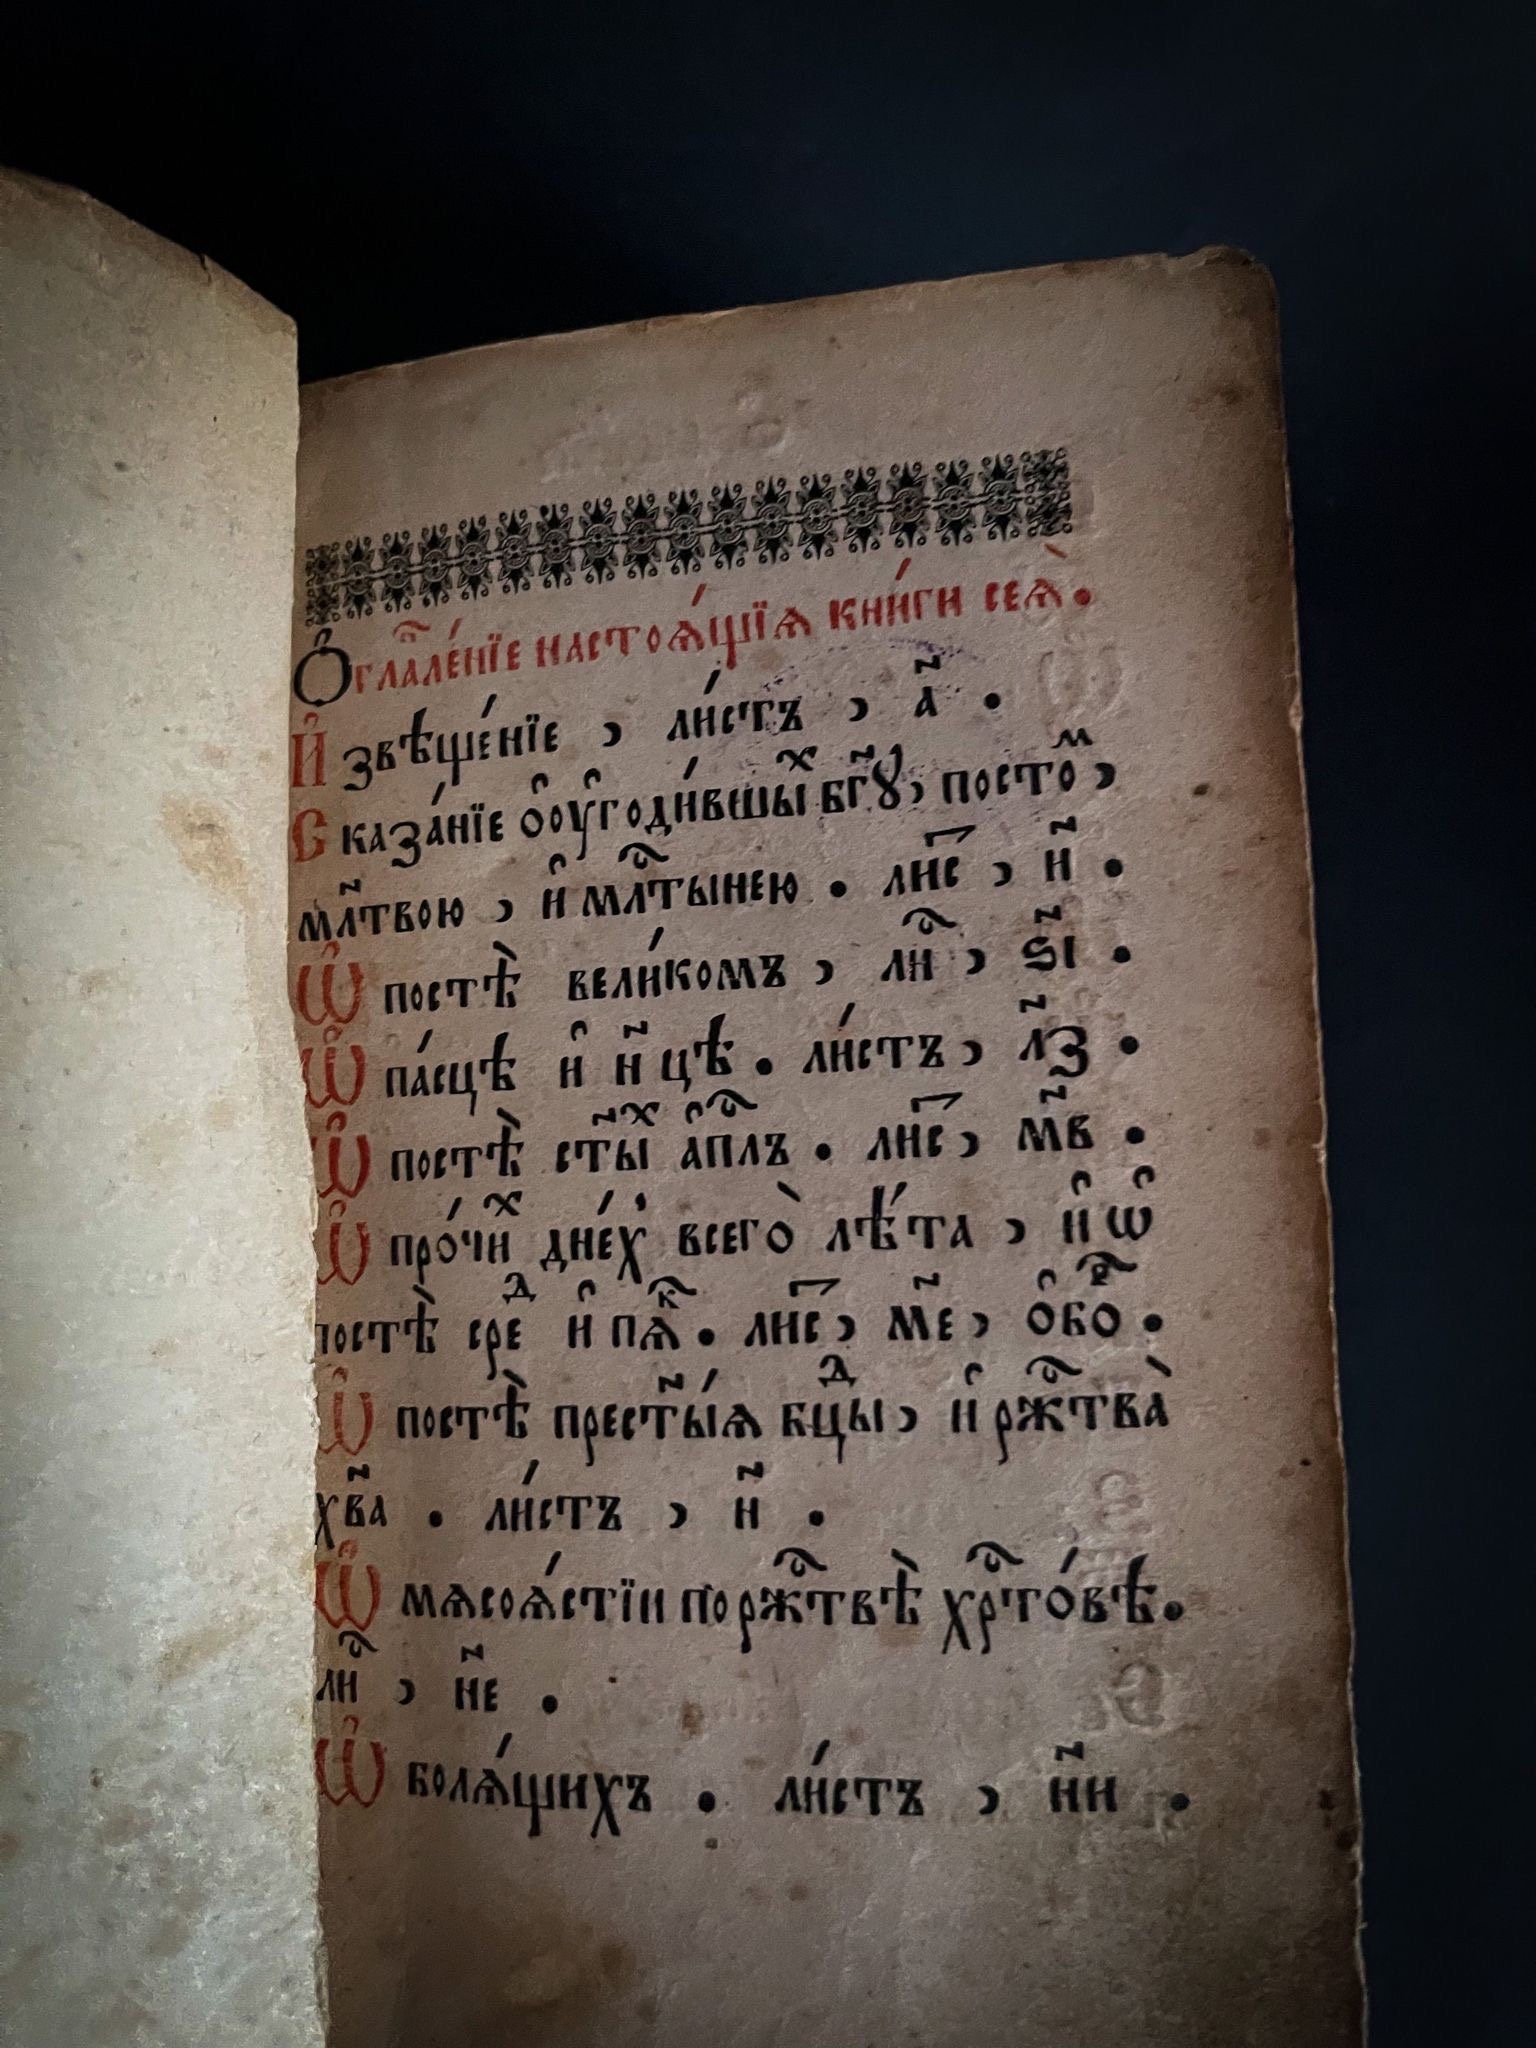 Ѻ҆главле́нїе настоѧ́щїѧ кни́ги сеѧ̀.
И҆звѣще́нїе , ли́стъ , а҃ .
Сказа́нїе ѻ҆оу҆годи́вшыⷯ бг҃ꙋ, постоⷨ ,
мл҃твою , и҆ млⷭ҇тынею . лиⷭ҇ , и҃ .
Ѽ постѣ̀ вели́комъ , лиⷭ҇ , ѕ҃і .
Ѽ па́сцѣ и҆ н҃цѣ . ли́стъ , л҃з .
Ѽ постѣ̀ ст҃ыⷯ а҆пⷭ҇лъ . лиⷭ҇ , м҃в .
Ѽ про́чиⷯ дне́хъ всего̀ лѣ́та , и҆ ѡ҆
постѣ̀ среⷣ и҆ пѧⷦ҇ . лиⷭ҇ , м҃е , ѻ҆боⷬ҇ .
Ѽ постѣ̀ прест҃ы́ѧ бцⷣы , и҆ ржⷭ҇тва̀
хв҃а . ли́стъ , н҃ .
Ѽ мѧсоѧ́стїи по ржⷭ҇твѣ̀ хрⷭ҇то́вѣ .
лиⷭ҇ , н҃е .
Ѽ болѧ́щихъ . ли́стъ , н҃и .